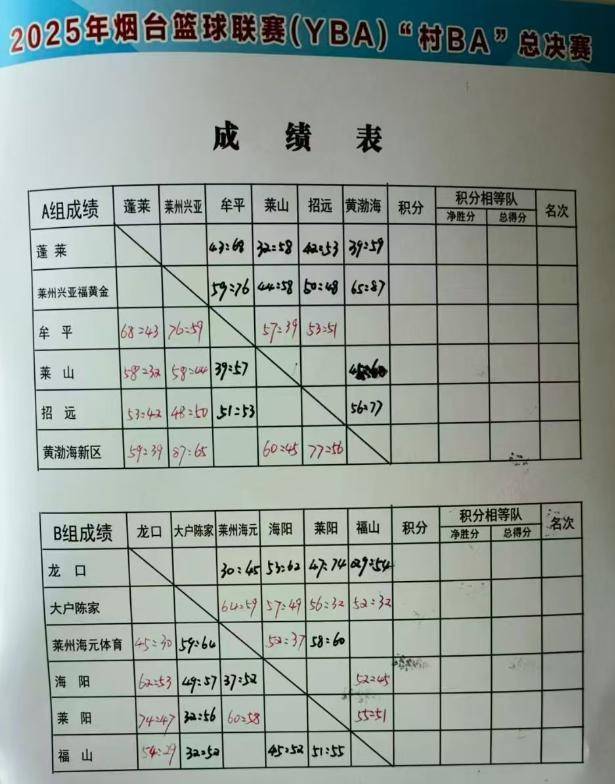 2025年烟台篮球联赛(YBA)“村BA”总决赛
成 绩 表
A组成绩 蓬莱 莱州兴亚 牟平 莱山 招远 黄渤海 积分 积分相等队 净胜分 总得分 名次
蓬 莱 43:68 32:58 42:53 39:59
莱州兴亚福黄金 59:76 44:58 50:48 65:87
牟 平 68:43 76:59 57:39 53:51
莱 山 58:32 58:44 39:57 45:60
招 远 53:42 48:50 51:53 56:77
黄渤海新区 59:39 87:65 60:45 77:56
B组成绩 龙口 大户陈家 莱州海元 海阳 莱阳 福山 积分 积分相等队 净胜分 总得分 名次
龙 口 30:45 53:62 47:74 29:54
大户陈家 64:59 57:49 56:32 52:32
莱州海元体育 45:30 59:64 52:37 58:60
海 阳 62:53 49:57 37:52 52:45
莱 阳 74:47 32:56 60:58 55:51
福 山 54:29 32:52 45:52 51:55